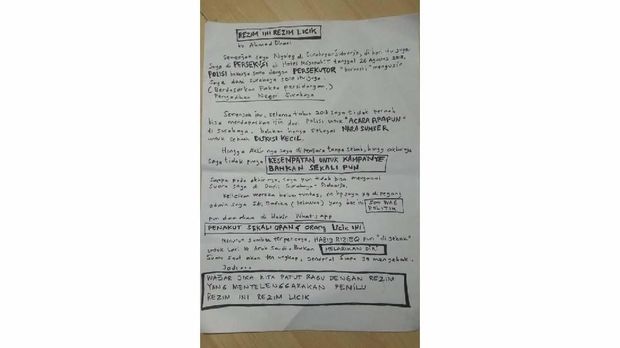 REZIM INI REZIM LICIK
by Ahmad Dhani
Semenjak saya Nyaleg di Surabaya-Sidoarjo, di hari itu juga
saya di PERSEKUSI di Hotel Majapahit tanggal 26 Agustus 2018.
POLISI bekerja sama dengan PERSEKUTOR "berhasil" mengusir
saya dari Surabaya sore itu juga.
(Berdasarkan Fakta persidangan)
Pengadilan Negeri Surabaya
Semenjak itu, selama tahun 2018 saya tidak pernah
bisa mendapatkan izin dari Polisi untuk "ACARA APAPUN"
di Surabaya, bahkan hanya sebagai NARA SUMBER
untuk sebuah DISKUSI KECIL.
Hingga Akhirnya saya di penjara tanpa sebab, hingga akhirnya
saya tidak punya KESEMPATAN UNTUK KAMPANYE
BAHKAN SEKALI PUN
Sampai pada akhirnya, saya pun tidak bisa mengawal
suara saya di Dapil Surabaya-Sidoarjo.
Kelicikan mereka belum tuntas, no hp saya yg di pegang
admin saya Sdr. Fadholi (relawan) yang berisi 500 WAG
POLITIK
pun dimatikan di blokir Whatsapp
PENAKUT SEKALI ORANG ORANG LICIK INI
Menurut sumber terpercaya, HABIB RIZIEQ pun "di jebak"
untuk lari ke Arab Saudi. Bukan MELARIKAN DIRI
Suatu saat akan terungkap, Jenderal siapa yg menjebak.
Jadi...
WAJAR JIKA KITA PATUT RAGU DENGAN REZIM
YANG MENYELENGGARAKAN PEMILU
REZIM INI REZIM LICIK